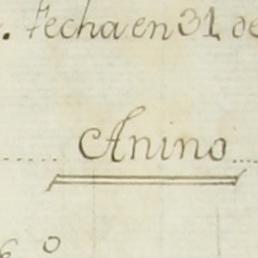 . Fecha en 31 de
Anino